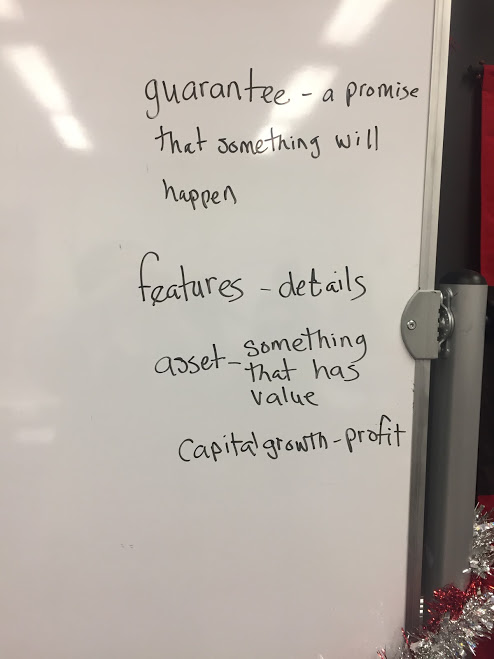 guarantee - a promise
that something will
happen
features - details
asset - something
that has
value
Capital growth - profit